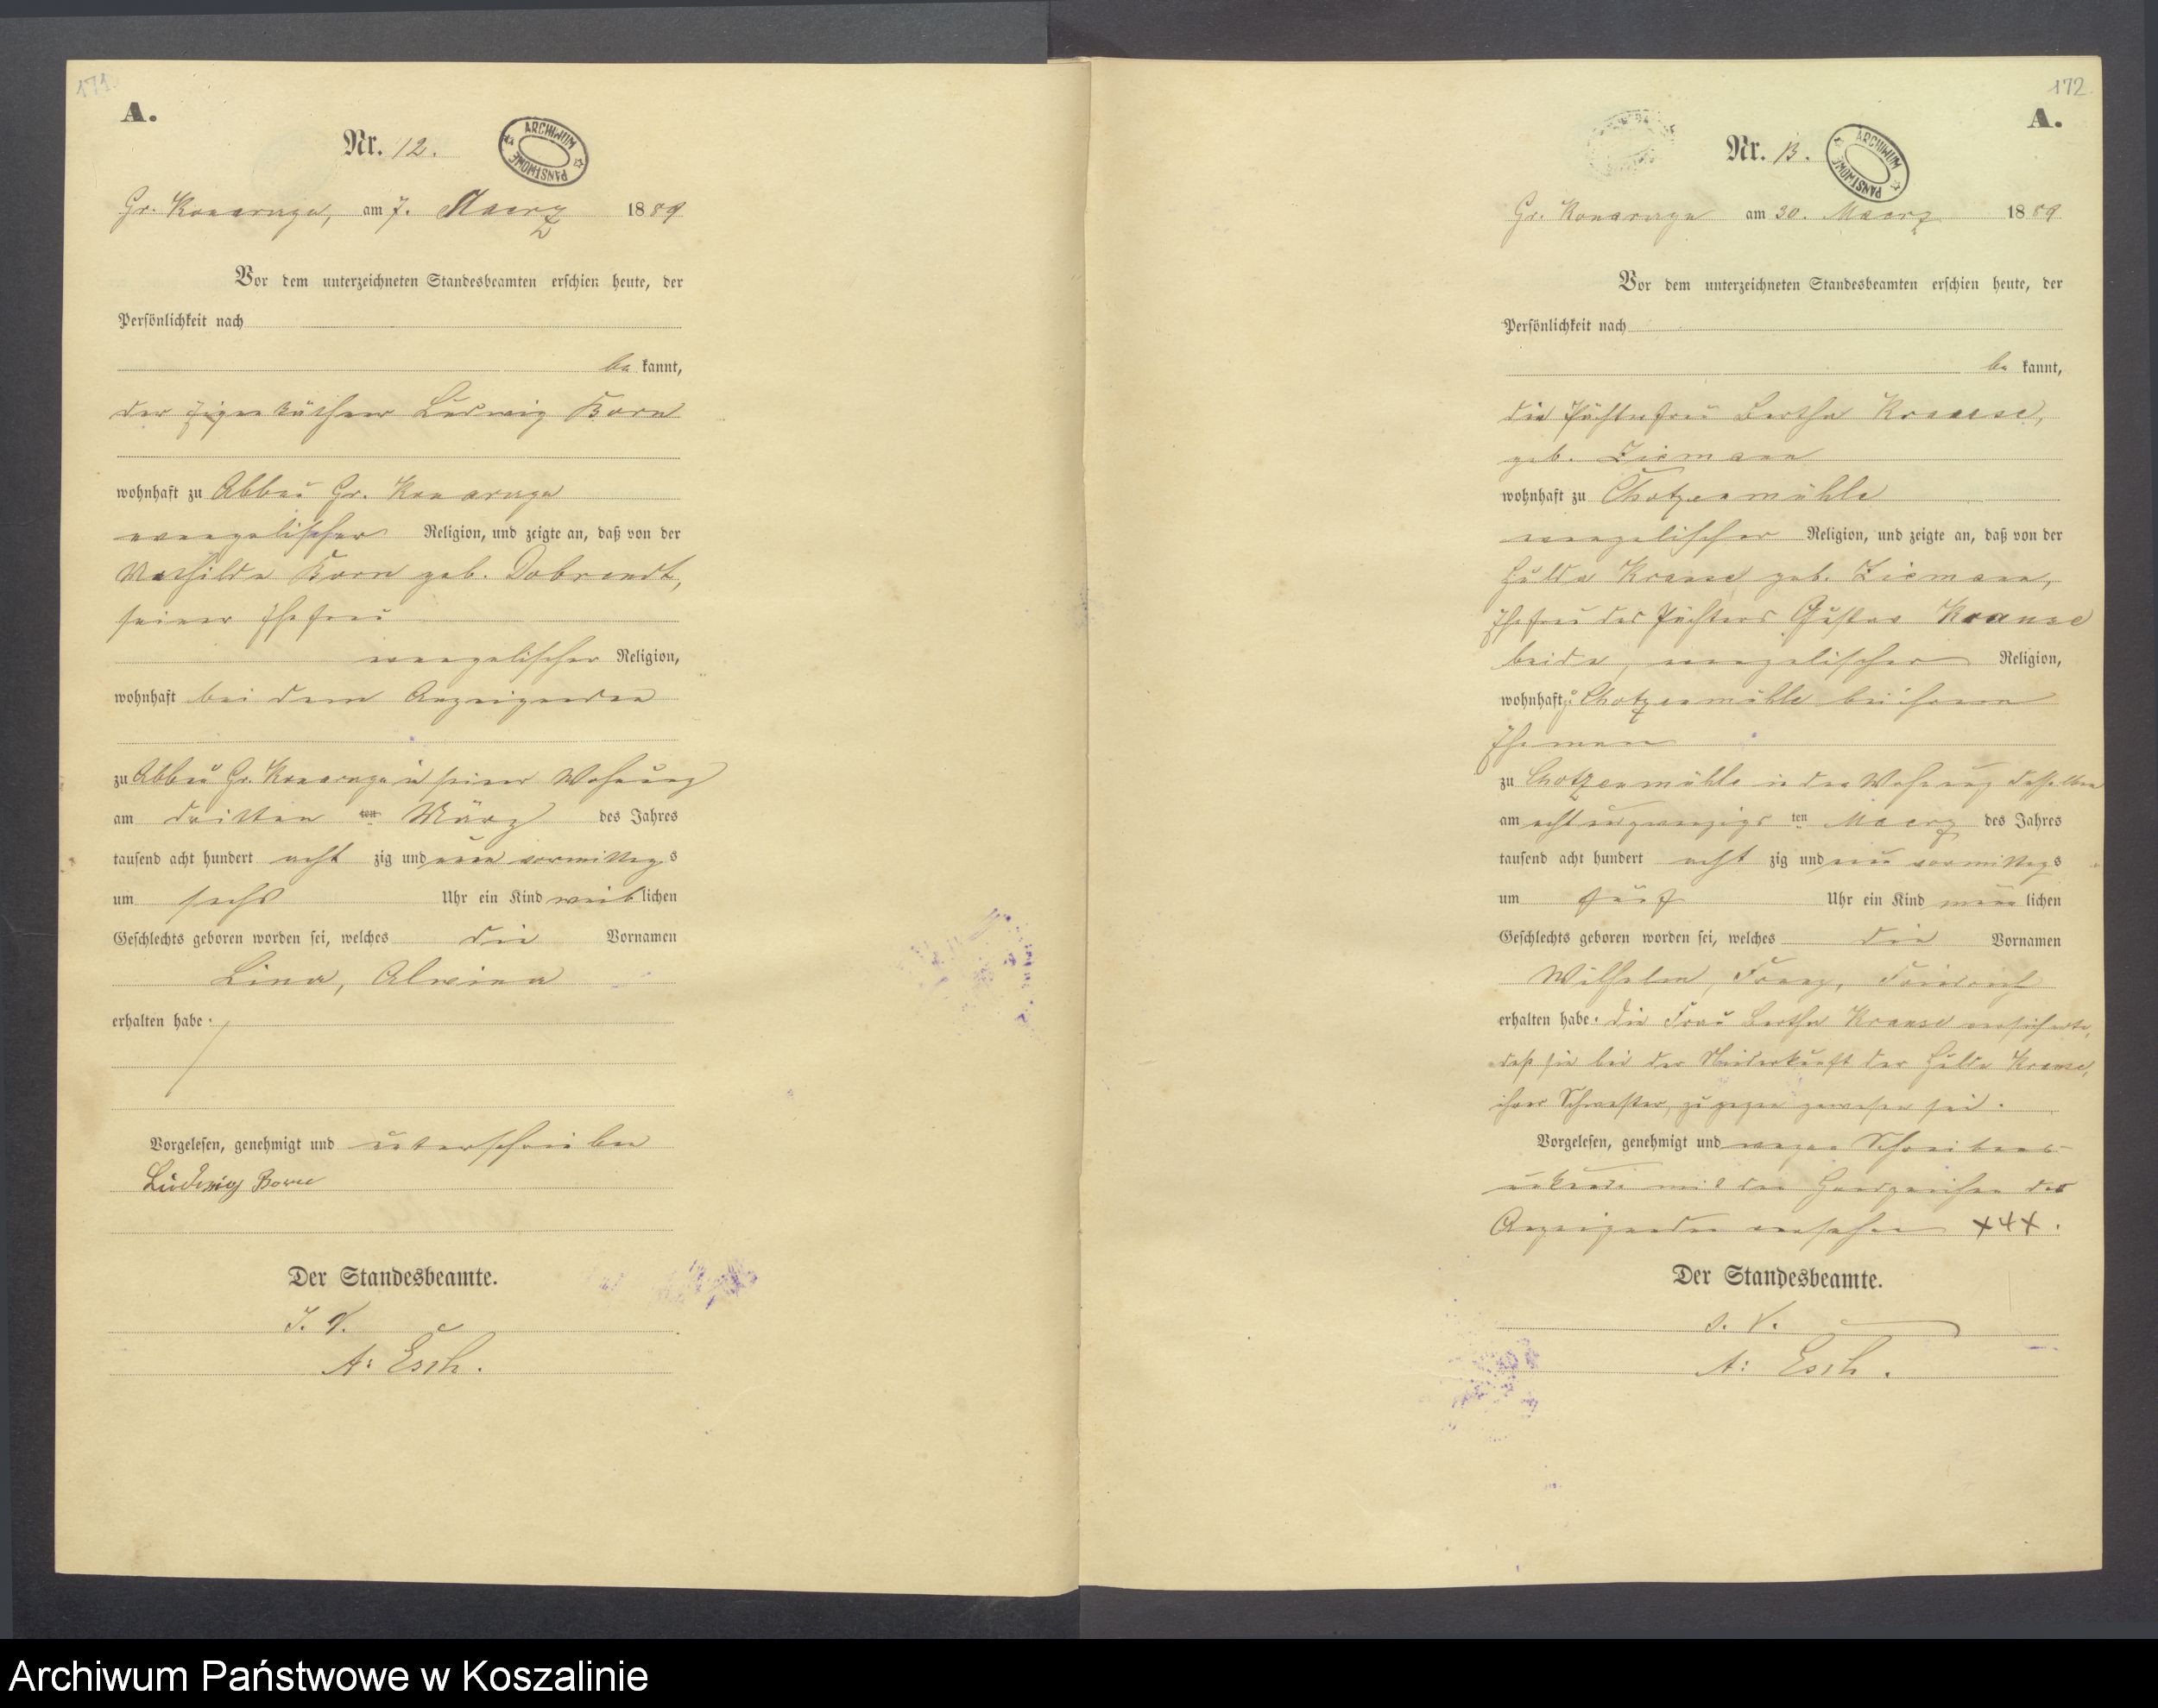 171.
A.
Nr. 12.
ARCHIWUM PAŃSTWOWE
Gr. Konarzyn, am 7. Maerz 1889
Vor dem unterzeichneten Standesbeamten erschien heute, der
Persönlichkeit nach
be kannt,
der Eigenkäthner Ludwig Born
wohnhaft zu Abbau Gr. Konarzyn
evangelischer Religion, und zeigte an, daß von der
Mathilde Born geb. Dobrandt,
seiner Ehefrau
evangelischer Religion,
wohnhaft bei dem Anzeigenden
zu Abbau Gr. Konarzyn in seiner Wohnung
am dritten ten März des Jahres
tausend acht hundert acht zig und neun vormittags
um sechs Uhr ein Kind weiblichen
Geschlechts geboren worden sei, welches die Vornamen
Lina, Alwina
erhalten habe.
Vorgelesen, genehmigt und unterschrieben
Ludwig Born
Der Standesbeamte.
I. V.
A: Esch.
172.
A.
Nr. 13.
ARCHIWUM PAŃSTWOWE
Gr. Konarzyn am 30. Maerz 1889
Vor dem unterzeichneten Standesbeamten erschien heute, der
Persönlichkeit nach
be kannt,
die Pächterfrau Bertha Krause,
geb. Ziemann
wohnhaft zu Chotzenmühle
evangelischer Religion, und zeigte an, daß von der
Hulda Krause geb. Ziemann,
Ehefrau des Pächters Gustav Krause
beide, evangelischer Religion,
wohnhaft zu Chotzenmühle bei ihrem
Ehemann
zu Chotzenmühle in der Wohnung desselben
am achtundzwanzigs ten Maerz des Jahres
tausend acht hundert acht zig und neun vormittags
um fünf Uhr ein Kind männlichen
Geschlechts geboren worden sei, welches die Vornamen
Wilhelm, Franz, Friedrich
erhalten habe. Die Frau Bertha Krause versicherte,
daß sie bei der Niederkunft der Hulda Krause,
ihrer Schwester, zugegen gewesen sei.
Vorgelesen, genehmigt und wegen Schreibens
unkunde mit den Handzeichen der
Anzeigenden versehen +++.
Der Standesbeamte.
I. V.
A: Esch.
Archiwum Państwowe w Koszalinie